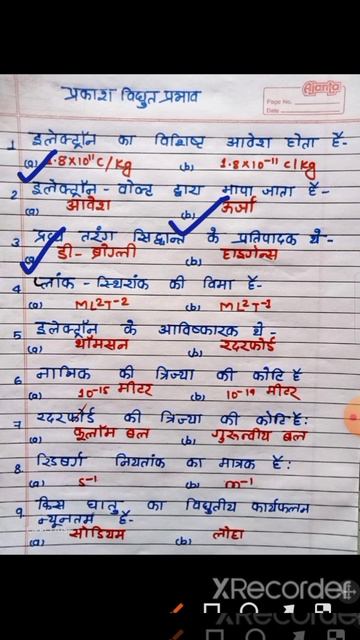 Ajanta
Page No.
Date
प्रकाश विद्युत प्रभाव
1 इलेक्ट्रॉन का विशिष्ट आवेश होता है-
(a) 1.8×10¹¹ C/Kg (b) 1.8×10⁻¹¹ C/Kg
2 इलेक्ट्रॉन-वोल्ट द्वारा मापा जाता है-
(a) आवेश (b) ऊर्जा
3 द्रव्य तरंग सिद्धान्त के प्रतिपादक थे-
(a) डी-ब्रोग्ली (b) हाइगेन्स
4 प्लांक-स्थिरांक की विमा है-
(a) ML²T⁻² (b) ML²T⁻¹
5 इलेक्ट्रॉन के आविष्कारक थे-
(a) थॉमसन (b) रदरफोर्ड
6 नाभिक की त्रिज्या की कोटि है
(a) 10⁻¹⁵ मीटर (b) 10⁻¹⁹ मीटर
7 रदरफोर्ड की त्रिज्या की कोटि है:
(a) कूलॉम बल (b) गुरुत्वीय बल
8 रिडबर्ग नियतांक का मात्रक है:
(a) s⁻¹ (b) m⁻¹
9 किस धातु का विद्युतीय कार्यफलन
न्यूनतम है-
(a) सोडियम (b) लोहा
XRecorder
XRecorder